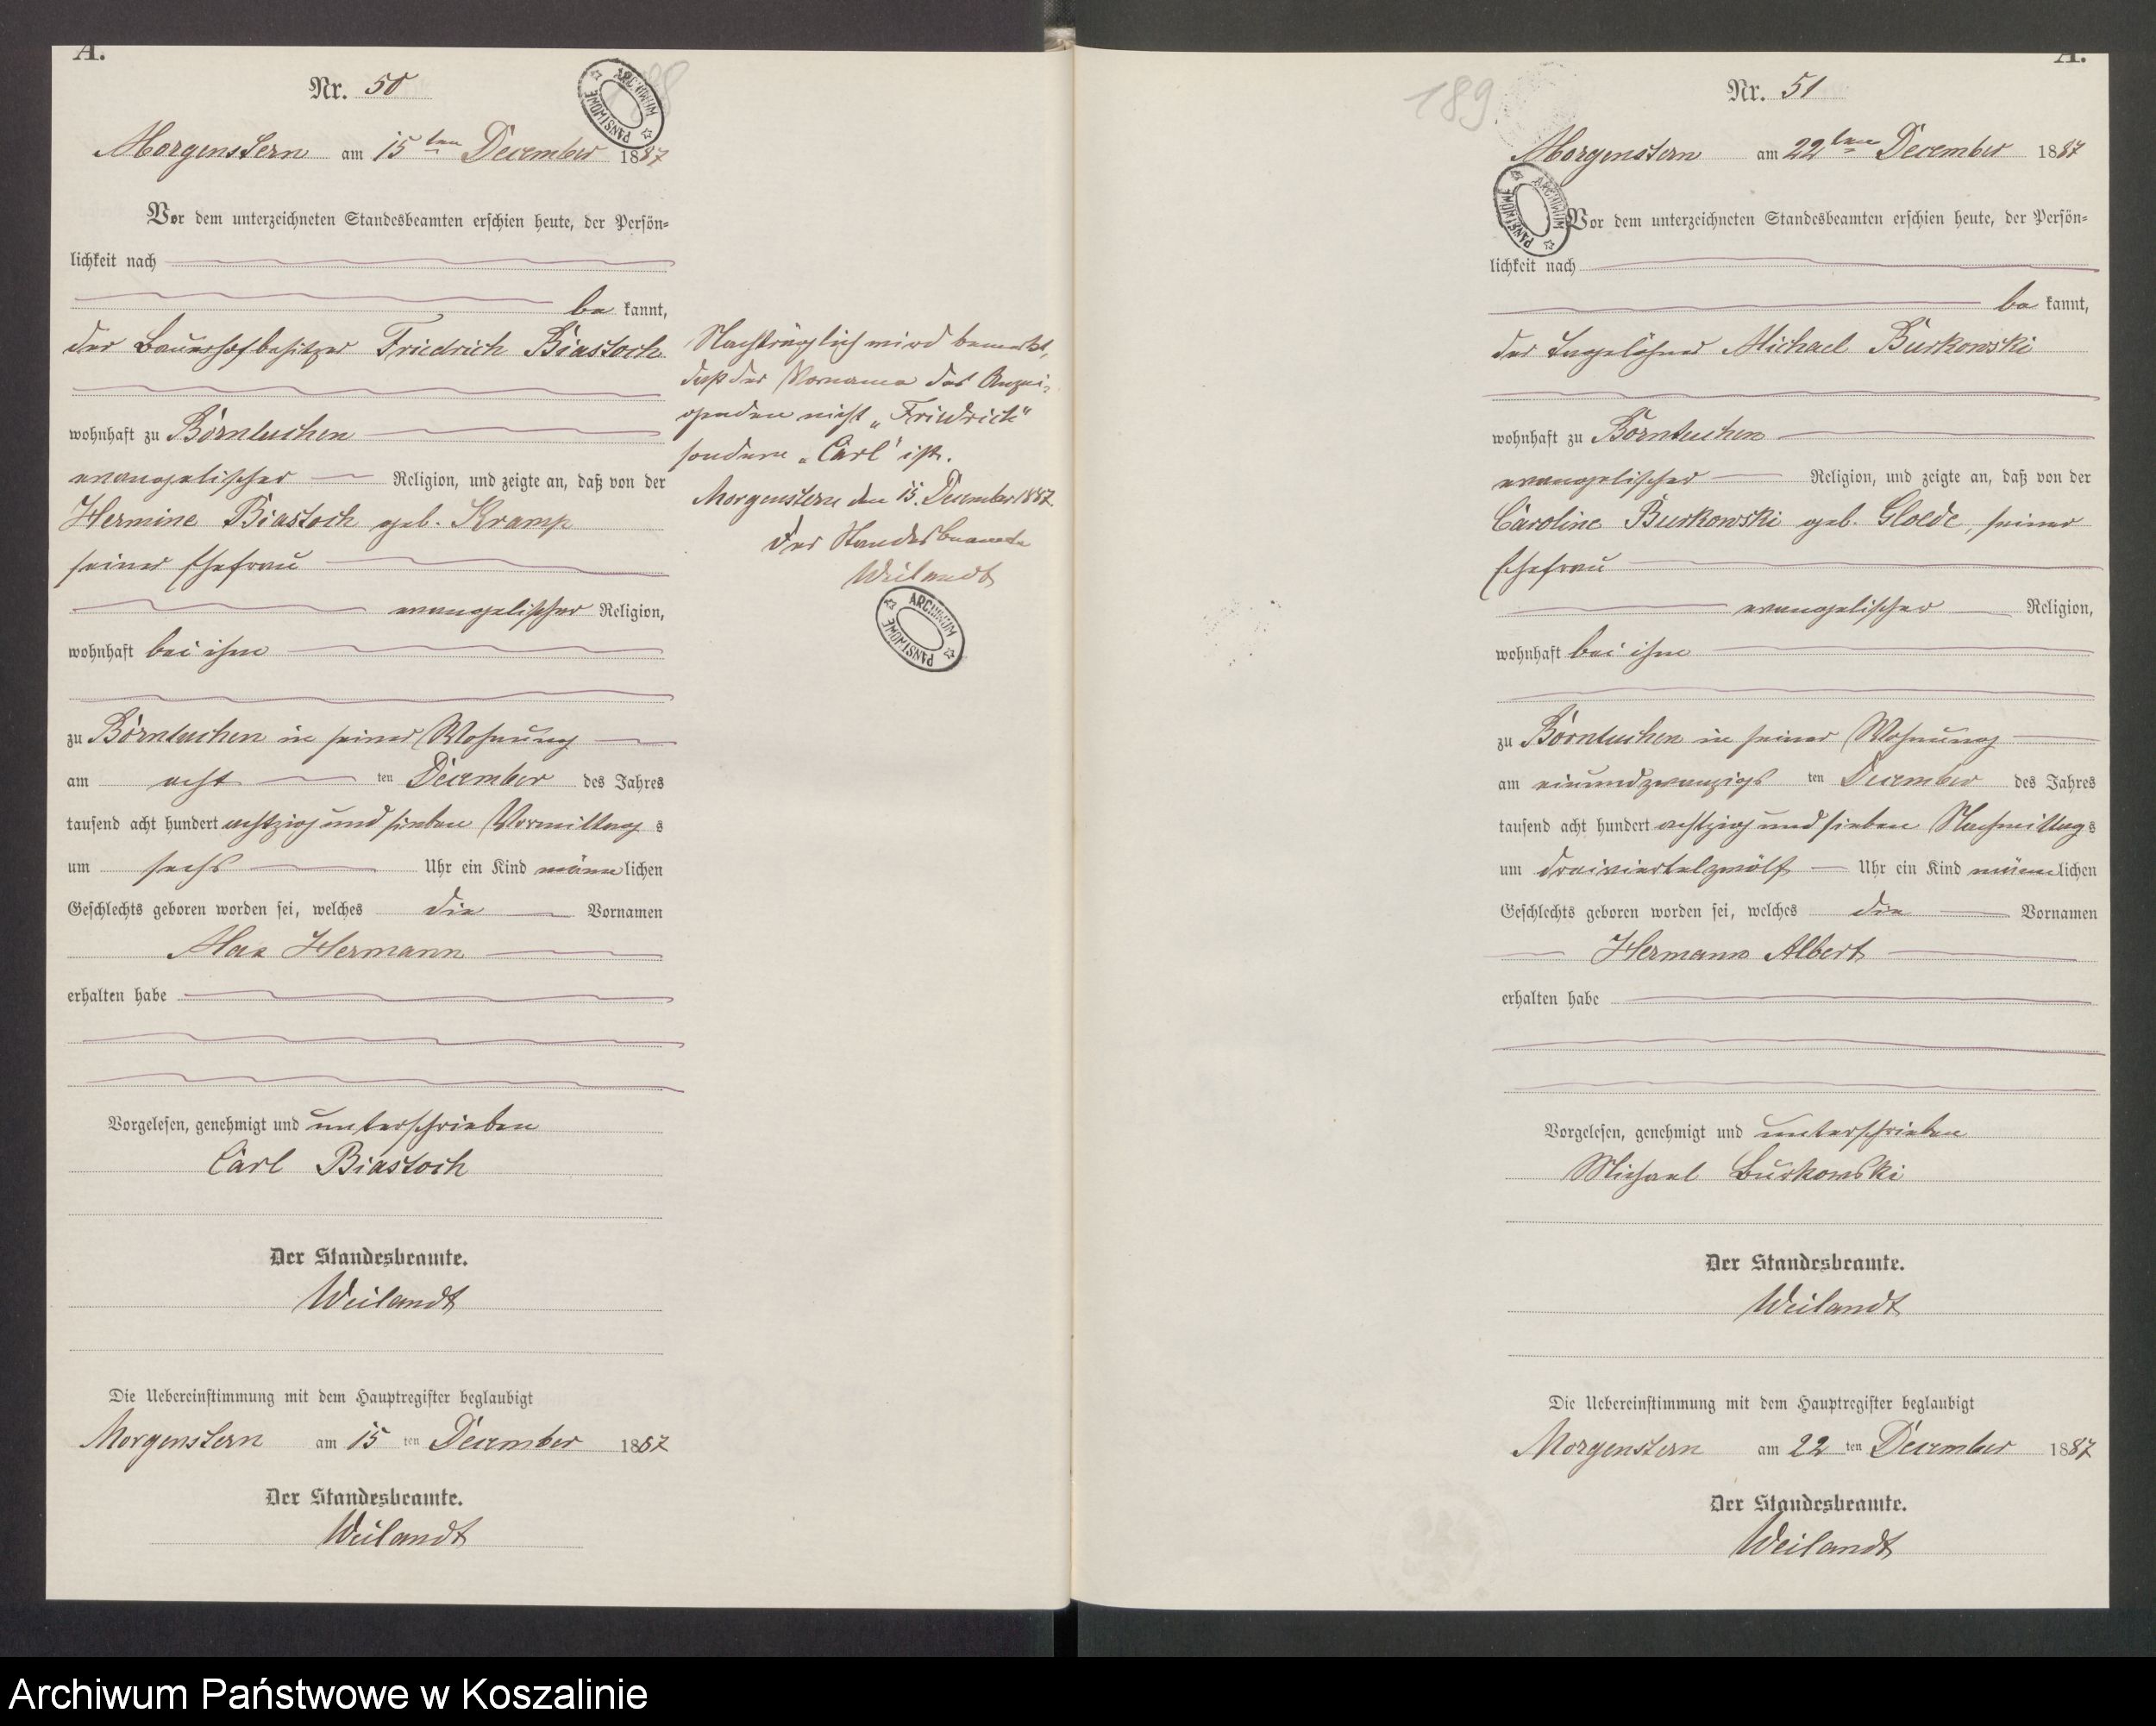 A.
Nr. 50
188
ARCHIWUM PAŃSTWOWE
Morgenstern am 15ten December 1887
Vor dem unterzeichneten Standesbeamten erschien heute, der Persön-
lichkeit nach
be kannt,
der Bauerhofbesitzer Friedrich Biastoch
wohnhaft zu Börntuchen
evangelischer Religion, und zeigte an, daß von der
Hermine Biastoch geb. Kramp
seiner Ehefrau
evangelischer Religion,
wohnhaft bei ihm
zu Börntuchen in seiner Wohnung
am acht ten December des Jahres
tausend acht hundert achtzig und sieben Vormittag s
um sechs Uhr ein Kind männlichen
Geschlechts geboren worden sei, welches die Vornamen
Max Hermann
erhalten habe
Vorgelesen, genehmigt und unterschrieben
Carl Biastoch
Der Standesbeamte.
Weilandt
Die Uebereinstimmung mit dem Hauptregister beglaubigt
Morgenstern am 15 ten December 1887
Der Standesbeamte.
Weilandt
Nachträglich wird bemerkt,
daß der Vorname des Anzei-
genden nicht „Friedrich"
sondern „Carl" ist.
Morgenstern den 15. December 1887.
Der Standesbeamte
Weilandt
ARCHIWUM PAŃSTWOWE
A.
189
Nr. 51
Morgenstern am 22ten December 1887
ARCHIWUM PAŃSTWOWE
Vor dem unterzeichneten Standesbeamten erschien heute, der Persön-
lichkeit nach
be kannt,
der Tagelöhner Michael Burkowski
wohnhaft zu Börntuchen
evangelischer Religion, und zeigte an, daß von der
Caroline Burkowski geb. Gloede, seiner
Ehefrau
evangelischer Religion,
wohnhaft bei ihm
zu Börntuchen in seiner Wohnung
am einundzwanzigs ten December des Jahres
tausend acht hundert achtzig und sieben Nachmittag s
um dreiviertelzwölf Uhr ein Kind männlichen
Geschlechts geboren worden sei, welches die Vornamen
Hermann Albert
erhalten habe
Vorgelesen, genehmigt und unterschrieben
Michael Burkowski
Der Standesbeamte.
Weilandt
Die Uebereinstimmung mit dem Hauptregister beglaubigt
Morgenstern am 22 ten December 1887
Der Standesbeamte.
Weilandt
Archiwum Państwowe w Koszalinie